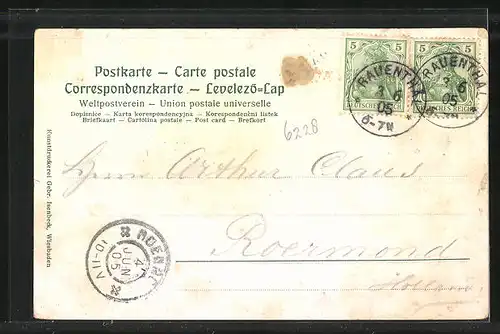 Postkarte – Carte postale
Correspondenzkarte – Levelező-Lap
Weltpostverein – Union postale universelle
Dopisnice – Karta korespondencyjna – Korespondenční lístek
Briefkaart – Cartolina postale – Post card – Brefkort
5 5
5 5
DEUTSCHES REICH
REICH
RAUENTHAL
3 6
05
6-7N
RAUENTHAL
6
05
6228
Herrn Arthur Claus
Roermond
Holland
ROERM
4
JUN
05
10-11V
Kunstdruckerei Gebr. Isenbeck, Wiesbaden